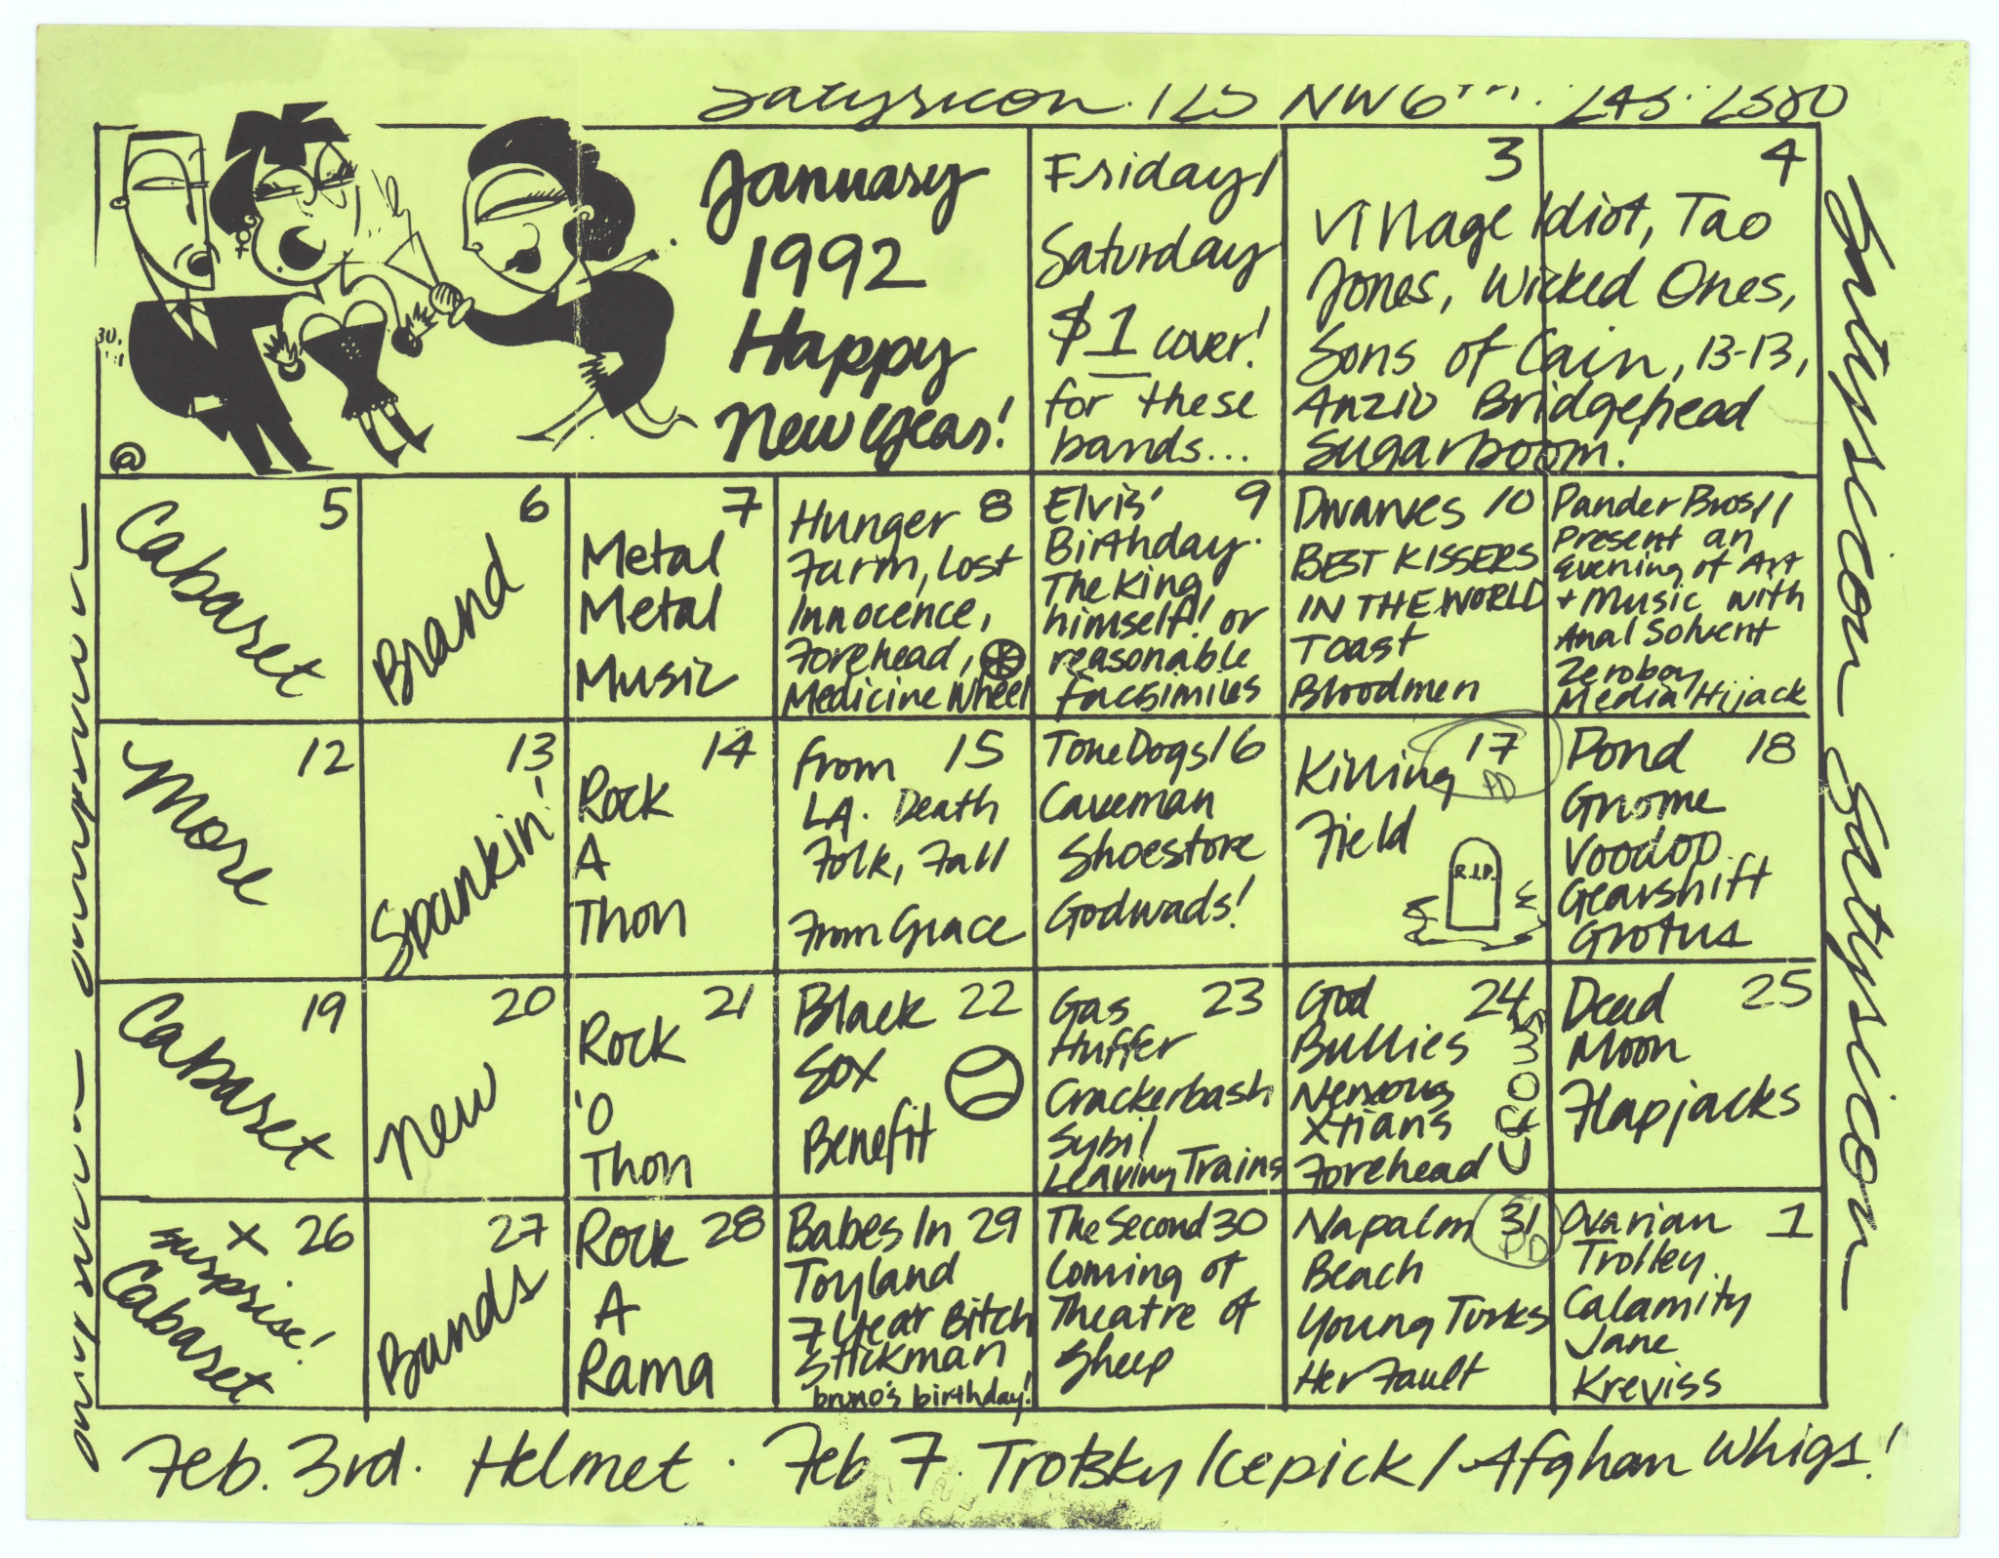 Satyricon. 125 NW 6th. 243. 2380
January
1992
Happy
New Year!
Friday/
Saturday
$1 cover!
for these
bands...
3
4
Village Idiot, Tao
Jones, Wicked Ones,
Sons of Cain, 13-13,
Anzio Bridgehead
Sugarboom!
@
5
Cabaret
6
Brand
7
Metal
Metal
Music
Hunger 8
Farm, Lost
Innocence,
Forehead,
Medicine Wheel
Elvis' 9
Birthday.
The King
himself! or
reasonable
facsimiles
Dwarves 10
BEST KISSERS
IN THE WORLD
Toast
Bloodmen
Pander Bros 11
Present an
Evening of Art
+ Music with
Anal Solvent
Zeroboy
Media Hijack
12
More
13
Spankin'
14
Rock
A
Thon
from 15
LA. Death
Folk, Fall
From Grace
Tone Dogs 16
Caveman
Shoestore
Godwads!
17
PD
Killing
Field
R.I.P.
Pond 18
Gnome
Voodoo
Gearshift
Grotus
19
Cabaret
20
New
21
Rock
'O
Thon
Black 22
Sox
Benefit
Gas 23
Huffer
Crackerbash
Sybil
Leaving Trains
God 24
Bullies
Nervous
Xtians
Forehead
CROWS
Dead 25
Moon
Flapjacks
X 26
surprise!
Cabaret
27
Bands
Rock 28
A
Rama
Babes In 29
Toyland
7 Year Bitch
Stickman
bruno's birthday!
The Second 30
Coming of
Theatre of
Sheep
Napalm 31
PD
Beach
Young Turks
Her Fault
Ovarian 1
Trolley
Calamity
Jane
Kreviss
Satyricon Satyricon
Feb. 3rd. Helmet. Feb 7. Trotsky Icepick / Afghan Whigs!